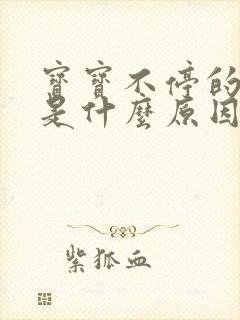 寶寶不停的
是什麼原因
紫狐血